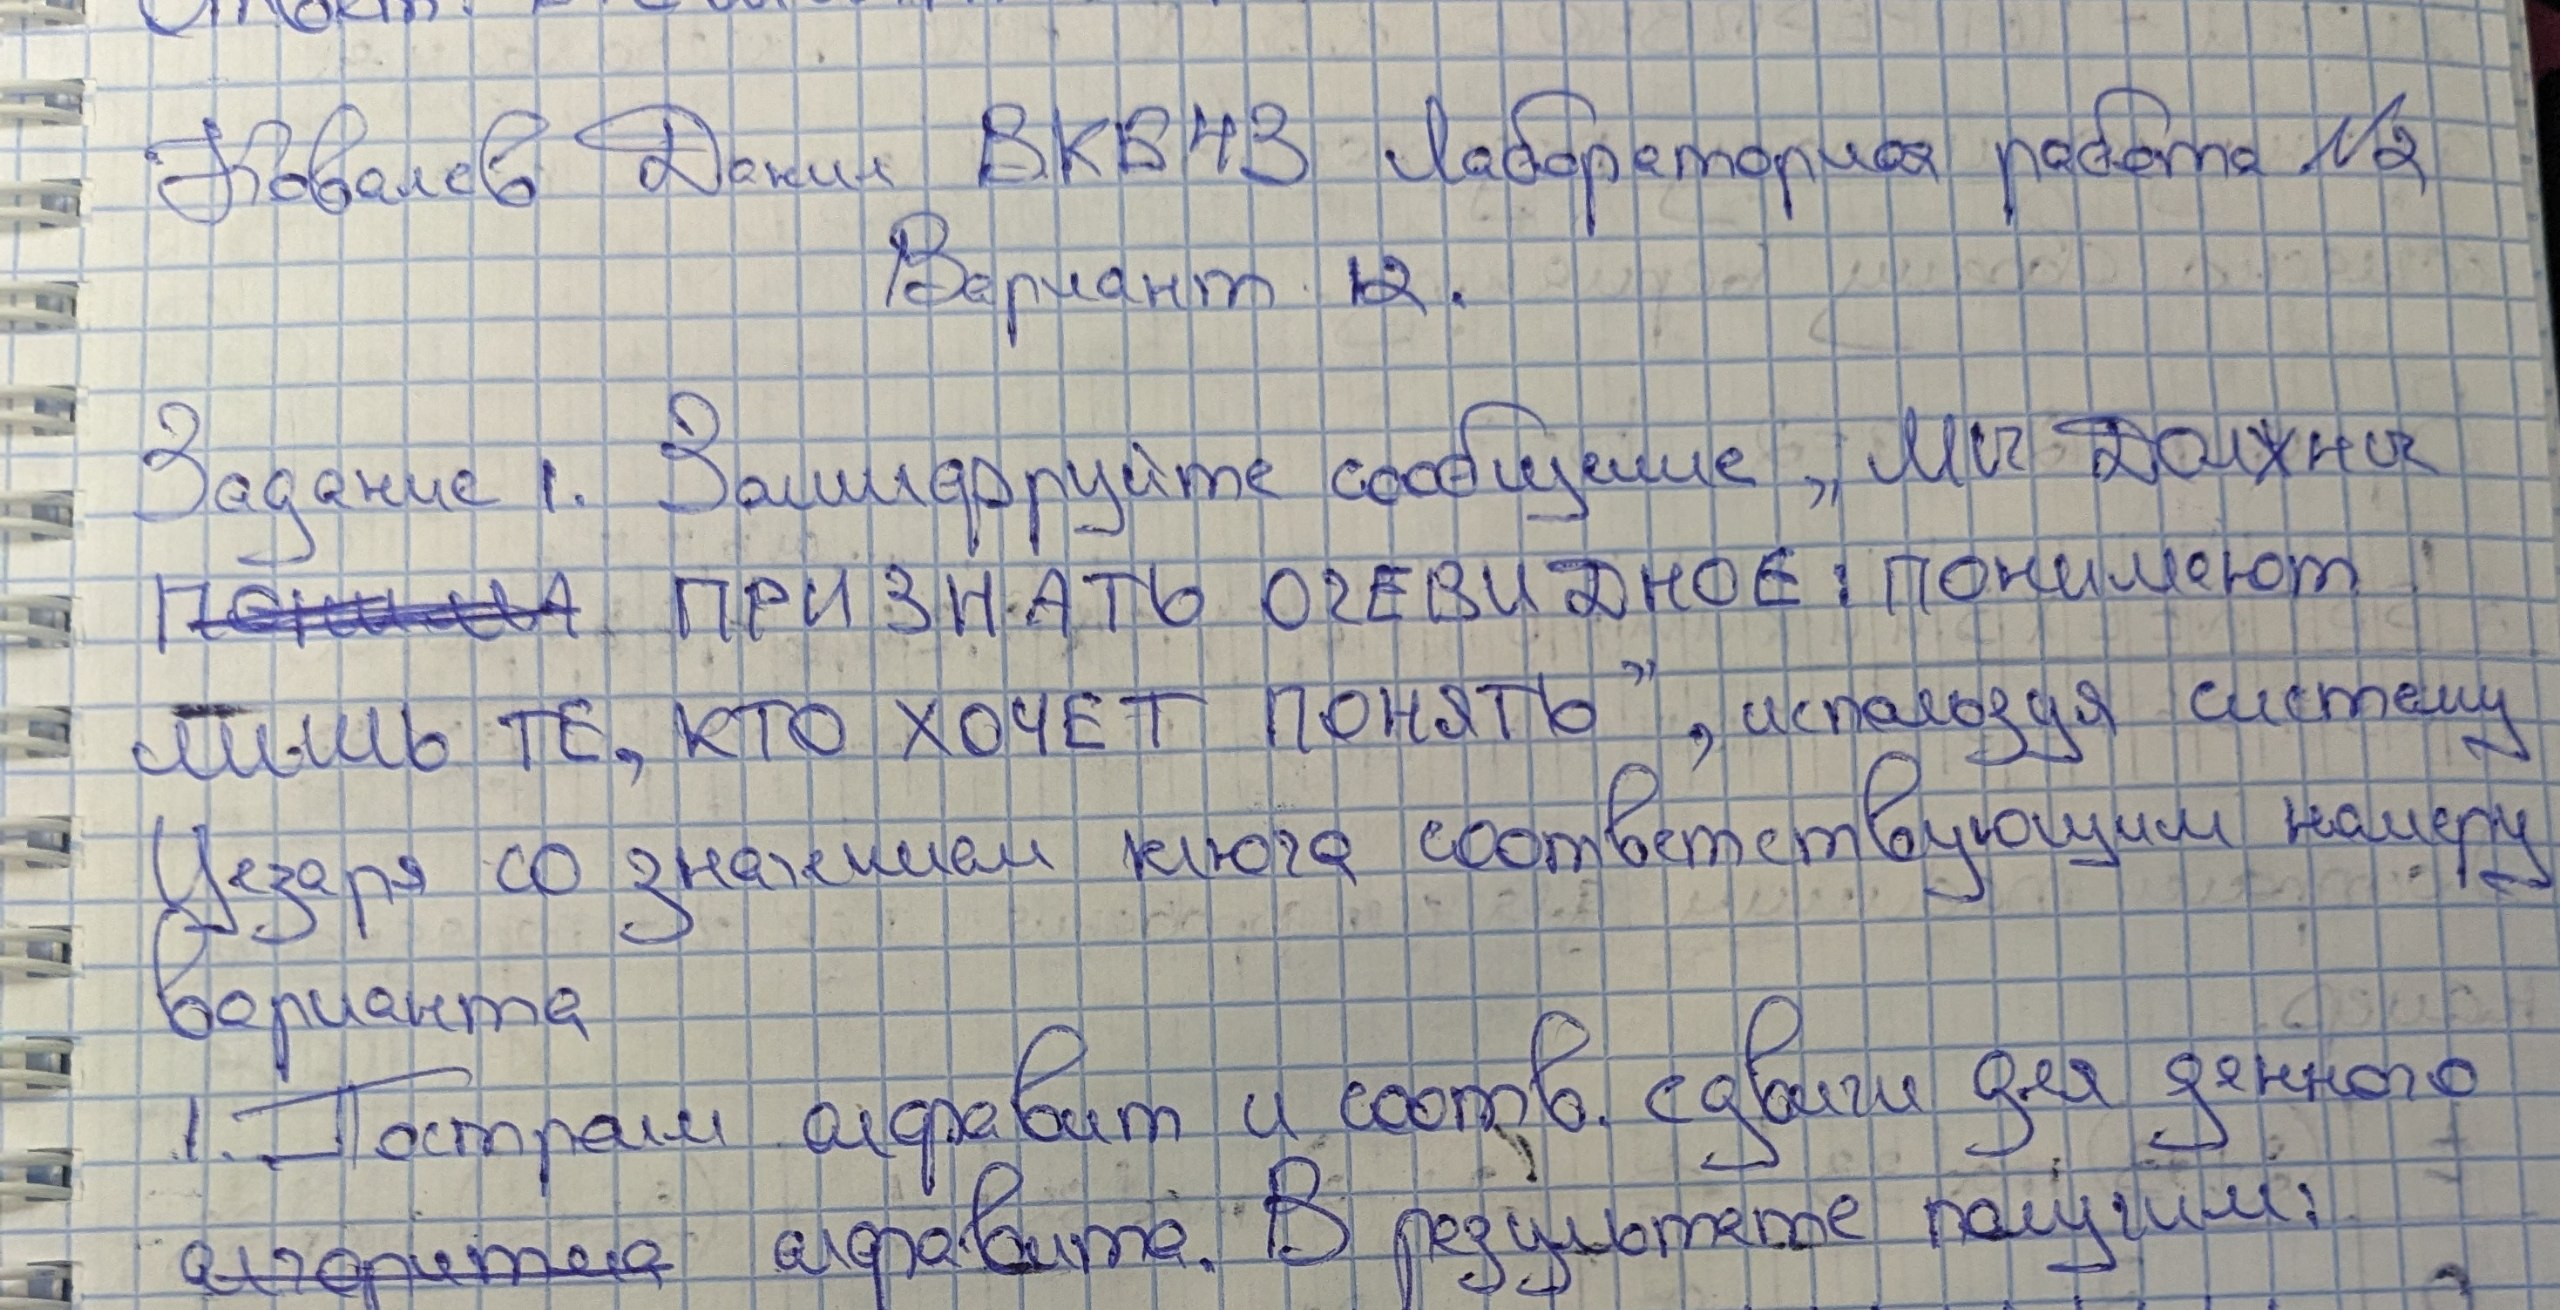 Ковалев Данил ВКБ43 Лабораторная работа №2
Вариант 12.
Задание 1. Зашифруйте сообщение „МЫ ДОЛЖНЫ
ПОНИМА ПРИЗНАТЬ ОЧЕВИДНОЕ: ПОНИМАЮТ
ЛИШЬ ТЕ, КТО ХОЧЕТ ПОНЯТЬ", используя систему
Цезаря со значением ключа соответствующим номеру
варианта
1. Построим алфавит и соотв. сдвиги для данного
алгоритма алфавита. В результате получим: